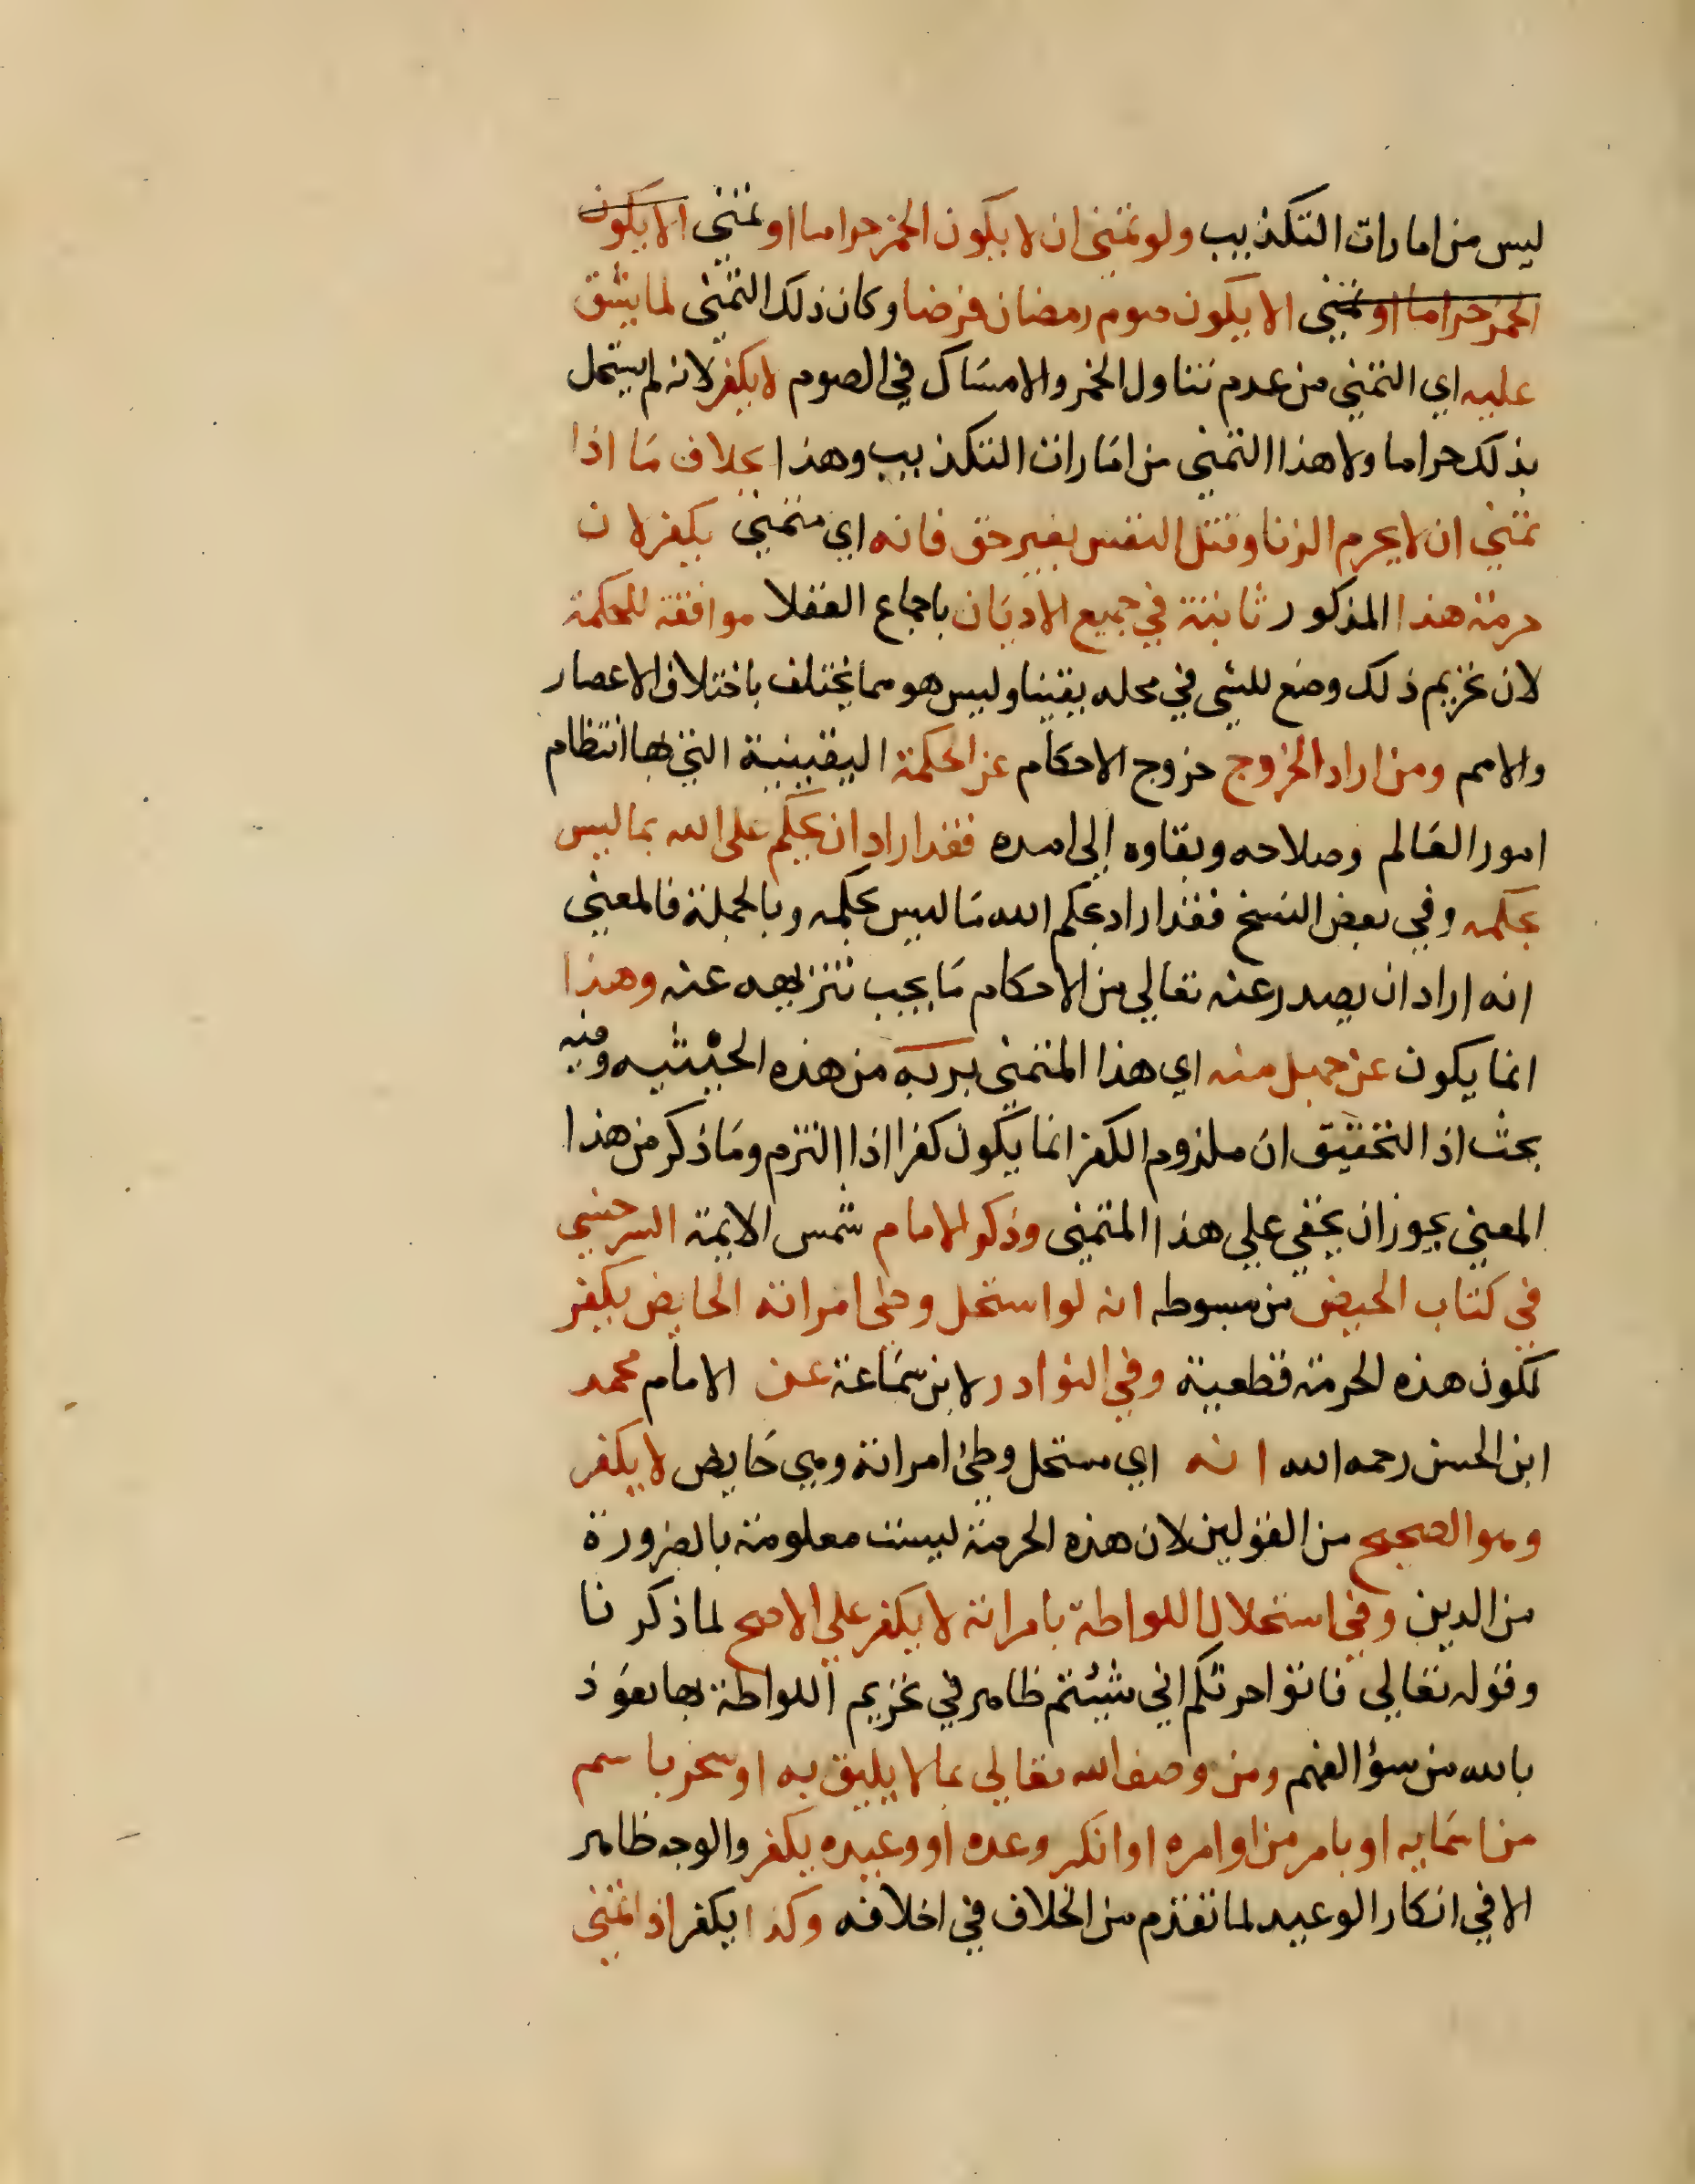 ليس من امارات التكذيب ولو تمني ان لا يكون الخمر حراما او تمني الا يكون
الخمر حراما او تمني الا يكون صوم رمضان فرضا وكان ذلك التمني لما يشق
عليه اي التمني من عدم تناول الخمر والامساك في الصوم لا يكفر لانه لم يستحل
بذلك حراما ولا هذا التمني من امارات التكذيب وهذا بخلاف ما اذا
تمني ان لا يحرم الزنا وقتل النفس بغير حق فانه اي متمني يكفر لان
حرمة هذا المذكور ثابتة في جميع الاديان باجماع العقلا موافقة للحكمة
لان تحريم ذلك وضع للشي في محله يقينا وليس هو مما يختلف باختلاف الاعصار
والامم ومن اراد الخروج خروج الاحكام عن الحكمة اليقينية التي بها انتظام
امور العالم وصلاحه وبقاوه الي امده فقد اراد ان يحكم علي الله بما ليس
بحكمه وفي بعض النسخ فقد اراد بحكم الله ما ليس بحكمه وبالجملة فالمعني
انه اراد ان يصدر عنه تعالي من الاحكام ما يجب تنزيهه عنه وهذا
انما يكون عن جهل منه اي هذا المتمني بربه من هذه الحيثيه وفيه
بحث اذ التحقيق ان ملزوم الكفر انما يكون كفرا اذا التزم وما ذكر من هذا
المعني يجوز ان يخفي علي هذا المتمني وذكر الامام شمس الايمة السرخسي
في كتاب الحيض من مبسوطه انه لو استحل وطئ امراته الحايض يكفر
لكون هذه الحرمة قطعية وفي النوادر لابن سماعة عن الامام محمد
ابن الحسن رحمه الله انه اي مستحل وطئ امراته وهي حايض لا يكفر
وهو الصحيح من القولين لان هذه الحرمة ليست معلومة بالضرورة
من الدين وفي استحلال اللواطة بامراته لا يكفر علي الاصح لما ذكرنا
وقوله تعالي فاتوا حرثكم اني شيئتم ظاهر في تحريم اللواطة بها نعوذ
بالله من سؤ الفهم ومن وصف الله تعالي بما لا يليق به او سخر باسم
من اسمايه او بامر من اوامره او انكر وعده او وعيده يكفر والوجه ظاهر
الا في انكار الوعيد لما تقدم من الخلاف في اخلافه وكذا يكفر اذا تمني